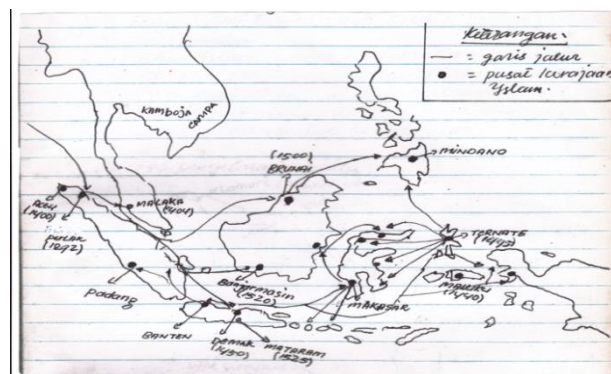 Keterangan:
— = garis jalur
● = pusat kerajaan
Islam.
Kamboja
CAMPA
(1500)
BRUNAI
MINDANO
ACEH
(1400)
PERLAK
(1292)
MALAKA
(1404)
TERNATE
(1440)
MALUKU
(1440)
Padang
Banjarmasin
(1520)
MAKASAR
BANTEN
DEMAK
(1450)
MATARAM
(1525)